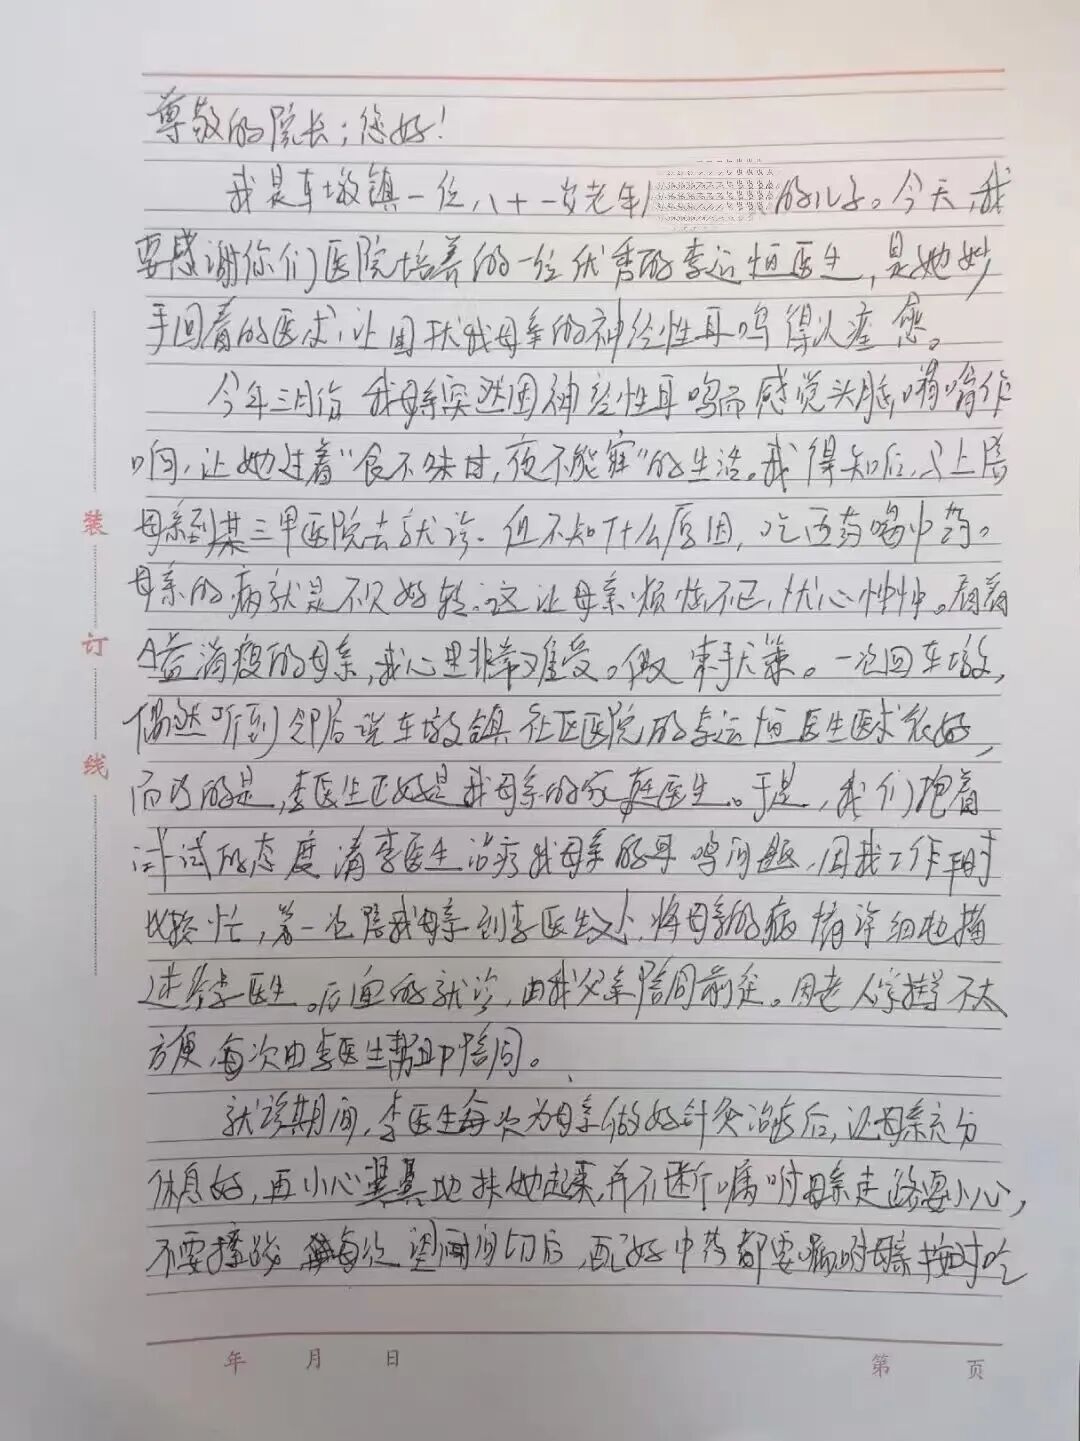 尊敬的院长：您好！
我是车墩镇一位八十一岁老年的儿子。今天，我
要感谢你们医院培养的一位优秀的李运恒医生，是她妙
手回春的医术，让困扰我母亲的神经性耳鸣得以痊愈。
今年三月份我母亲突然因神经性耳鸣而感觉头脑嗡嗡作
响，让她过着"食不味甘，夜不能寐"的生活。我得知后，马上陪
母亲到某三甲医院去就诊。但不知什么原因，吃西药喝中药。
母亲的病就是不见好转。这让母亲烦恼不已，忧心忡忡。看着
日益消瘦的母亲，我心里非常难受。但又束手无策。一次回车墩，
偶然听到邻居说车墩镇社区医院的李运恒医生医术很好，
而巧的是，李医生正好是我母亲的家庭医生。于是，我们抱着
试试的态度请李医生治疗我母亲的耳鸣问题，因我工作平时
比较忙，第一次陪我母亲到李医生处，将母亲的病情详细地描
述给李医生。后面的就诊，由我父亲陪同前往。因老人家挂号不太
方便，每次由李医生帮助陪同。
就诊期间，李医生每次为母亲做好针灸治病后，让母亲充分
休息好，再小心翼翼地扶她起来，并不断嘱咐母亲走路要小心，
不要撞跌 每次望闻问切后，配好中药都要嘱咐母亲按时吃
装
订
线
年 月 日 第 页